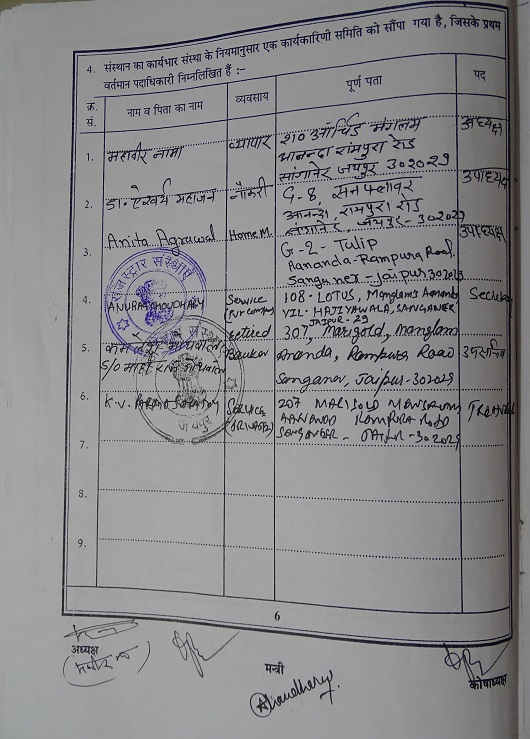 4. संस्थान का कार्यभार संस्था के नियमानुसार एक कार्यकारिणी समिति को सौंपा गया है, जिसके प्रथम
वर्तमान पदाधिकारी निम्नलिखित हैं :-
क्र. सं. नाम व पिता का नाम व्यवसाय पूर्ण पता पद
1. महावीर नामा व्यापार 210 ऑर्चिड मंगलम अध्यक्ष
आनन्दा रामपुरा रोड
सांगानेर जयपुर 302029
2. डा. ऐश्वर्य महाजन नौकरी G-8, सनफ्लावर उपाध्यक्ष
आनन्दा, रामपुरा रोड
सांगानेर, जयपुर-302029
3. Anita Agrawal Home M. G-2- Tulip उपाध्यक्ष
Aananda-Rampura Road.
Sanganer-Jaipur 302029
4. ANURAG CHOUDHARY Service 108-LOTUS, Manglam Aananda
VIL-HAJIYAWALA, SANGANER
JAIPUR-29
5. Retired 307, Marigold, Manglam
Banker Ananda, Rampura Road
Sanganer, Jaipur-302029
6. K.V. SERVICE 207 MARIGOLD
AANANDA RAMPURA ROAD
SANGANER - JAIPUR-302029
7.
8.
9.
रजिस्ट्रार संस्थाएं
जयपुर
6
अध्यक्ष
मन्त्री
Choudhary
कोषाध्यक्ष